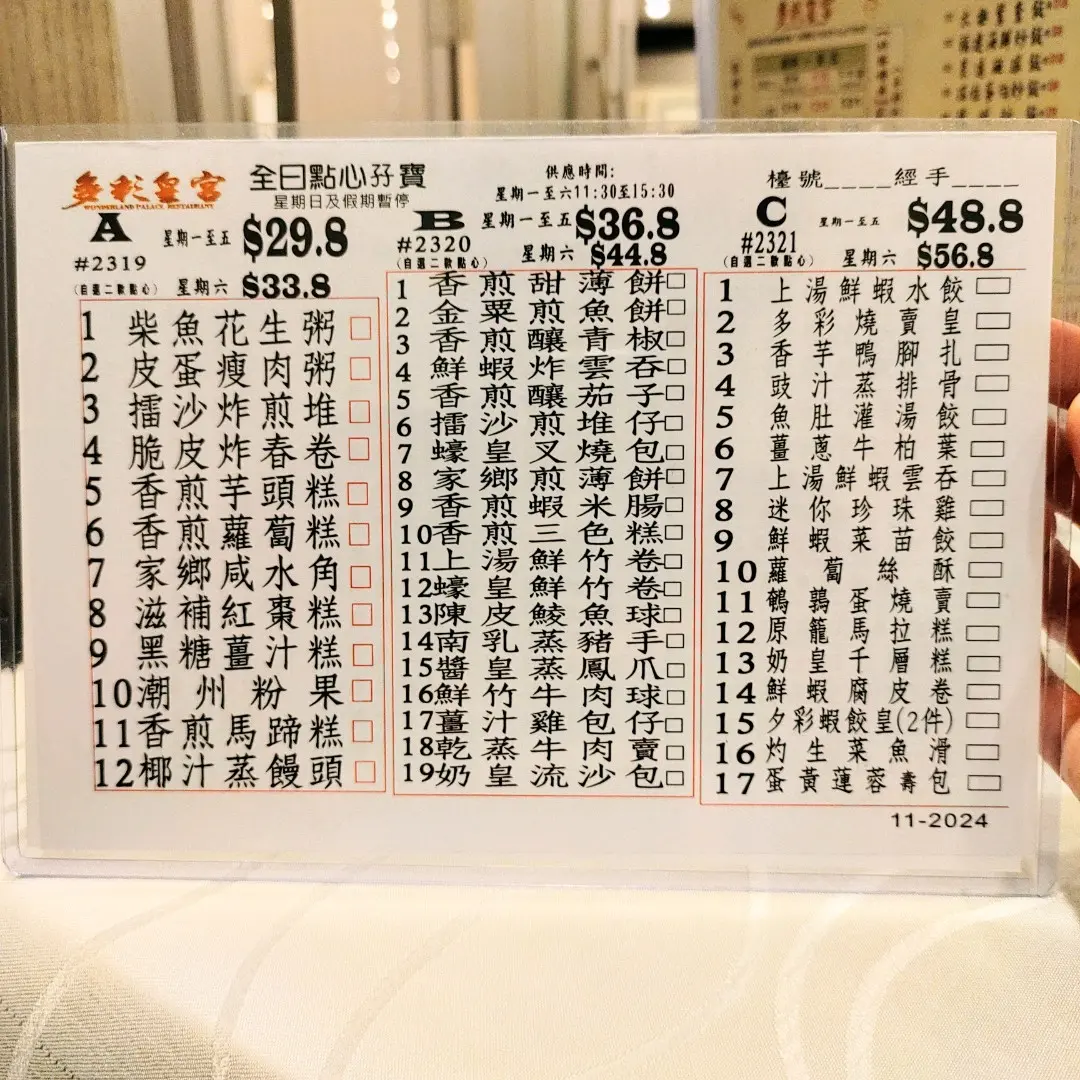 多彩皇宮
WONDERLAND PALACE RESTAURANT
全日點心孖寶
星期日及假期暫停
供應時間:
星期一至六11:30至15:30
檯號____經手____
A
#2319
(自選二款點心)
星期一至五 $29.8
星期六 $33.8
1 柴魚花生粥
2 皮蛋瘦肉粥
3 擂沙炸煎堆
4 脆皮炸春卷
5 香煎芋頭糕
6 香煎蘿蔔糕
7 家鄉咸水角
8 滋補紅棗糕
9 黑糖薑汁糕
10 潮州粉果
11 香煎馬蹄糕
12 椰汁蒸饅頭
B
#2320
(自選二款點心)
星期一至五 $36.8
星期六 $44.8
1 香煎甜薄餅
2 金粟煎魚餅
3 香煎釀青椒
4 鮮蝦炸雲吞
5 香煎釀茄子
6 擂沙煎堆仔
7 蠔皇叉燒包
8 家鄉煎薄餅
9 香煎蝦米腸
10 香煎三色糕
11 上湯鮮竹卷
12 蠔皇鮮竹卷
13 陳皮鯪魚球
14 南乳蒸豬手
15 醬皇蒸鳳爪
16 鮮竹牛肉球
17 薑汁雞包仔
18 乾蒸牛肉賣
19 奶皇流沙包
C
#2321
(自選二款點心)
星期一至五 $48.8
星期六 $56.8
1 上湯鮮蝦水餃
2 多彩燒賣皇
3 香芋鴨腳扎
4 豉汁蒸排骨
5 魚肚灌湯餃
6 薑蔥牛柏葉
7 上湯鮮蝦雲吞
8 迷你珍珠雞
9 鮮蝦菜苗餃
10 蘿蔔絲酥
11 鵪鶉蛋燒賣
12 原籠馬拉糕
13 奶皇千層糕
14 鮮蝦腐皮卷
15 夕彩蝦餃皇(2件)
16 灼生菜魚滑
17 蛋黃蓮蓉壽包
11-2024